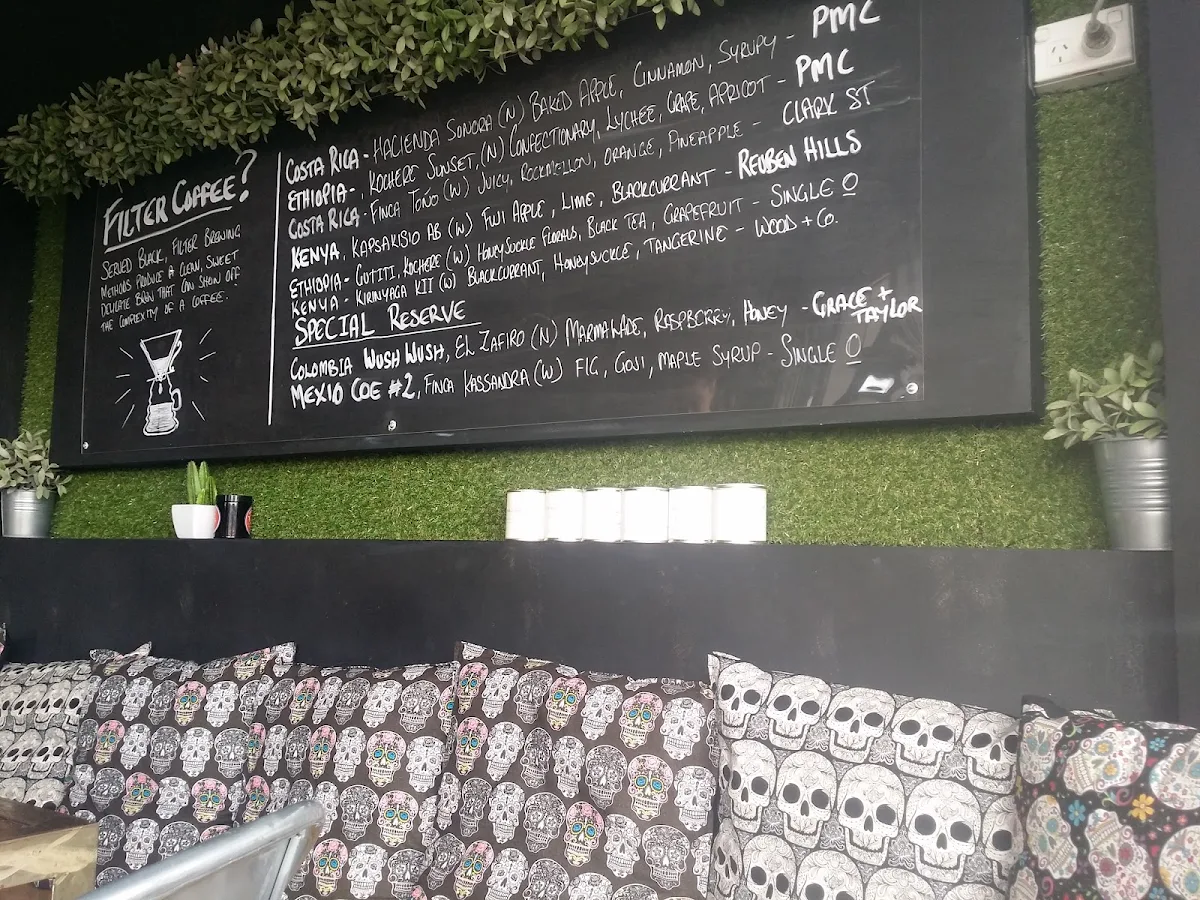 FILTER COFFEE?
SERVED BLACK, FILTER BREWING
METHODS PRODUCE A CLEAN, SWEET
DELICATE BREW THAT CAN SHOW OFF
THE COMPLEXITY OF A COFFEE.
COSTA RICA - HACIENDA SONORA (N) BAKED APPLE, CINNAMON, SYRUPY - PMC
ETHIOPIA - KOCHERE SUNSET, (N) CONFECTIONARY, LYCHEE, GRAPE, APRICOT - PMC
COSTA RICA - FINCA TOÑO (W) JUICY, ROCKMELLON, ORANGE, PINEAPPLE - CLARK ST
KENYA, KAPSAKISIO AB (W) FUJI APPLE, LIME, BLACKCURRANT - REUBEN HILLS
ETHIOPIA - GUTITI, KOCHERE (W) HONEYSUCKLE FLORALS, BLACK TEA, GRAPEFRUIT - SINGLE O
KENYA - KIRINYAGA KII (W) BLACKCURRANT, HONEYSUCKLE, TANGERINE - WOOD + CO.
SPECIAL RESERVE
COLOMBIA WUSH WUSH, EL ZAFIRO (N) MARMALADE, RASPBERRY, HONEY - GRACE + TAYLOR
MEXIO COE #2, FINCA KASSANDRA (W) FIG, GOJI, MAPLE SYRUP - SINGLE O